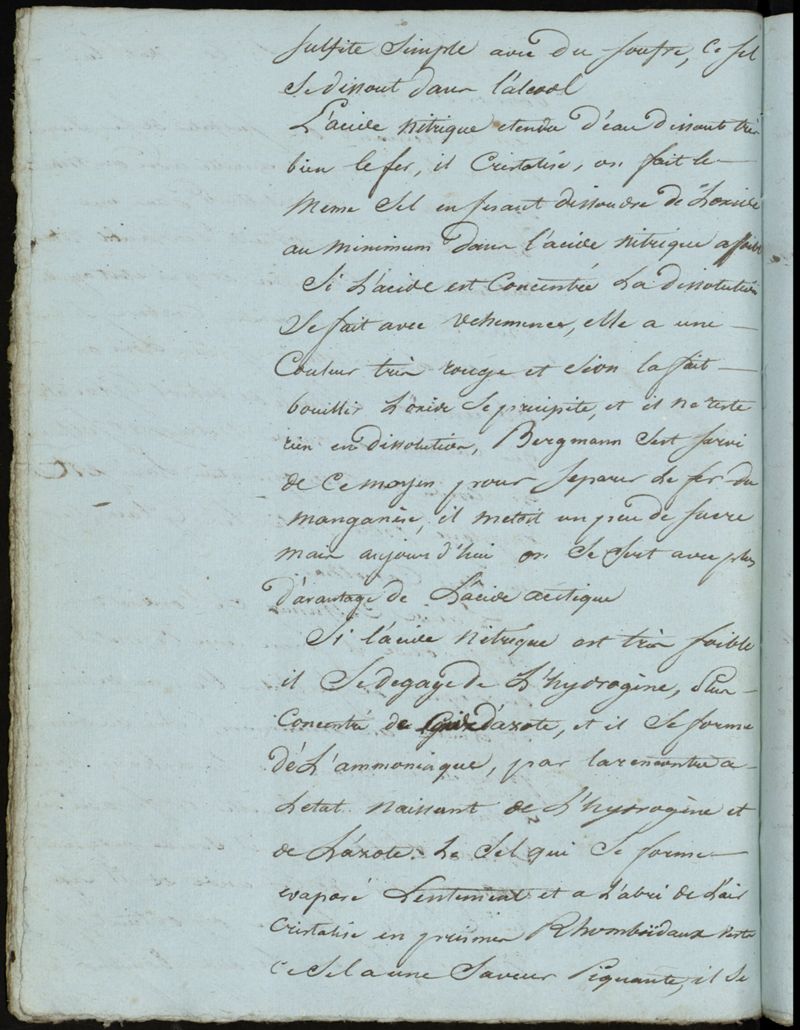 sulfite simple avec du soufre, ce sel
se dissout dans l'alcool
L'acide nitrique etendu d'eau dissout très
bien le fer, il cristalise, on fait le
meme sel en fesant dissoudre de l'oxide
au minimum dans l'acide nitrique afoibli
Si l'acide est concentré la dissolution
se fait avec vehemence, elle a une
couleur très rouge et si on la fait
bouillir l'oxide se precipite, et il ne reste
rien en dissolution, Bergmann s'est servi
de ce moyen pour separer le fer du
manganèse, il metoit un peu de sucre
mais aujourd'hui on se sert avec plus
d'avantage de l'acide acétique
Si l'acide nitrique est très foible
il se degage de l'hydrogène, plus
concentré de gaz d'azote, et il se forme
de l'ammoniaque, par la rencontre a
letat naissant de l'hydrogène et
de l'azote. Le sel qui se forme
evaporé lentement et a l'abri de l'air
cristalise en prismes Rhomboïdaux verts
ce sel a une saveur piquante, il se